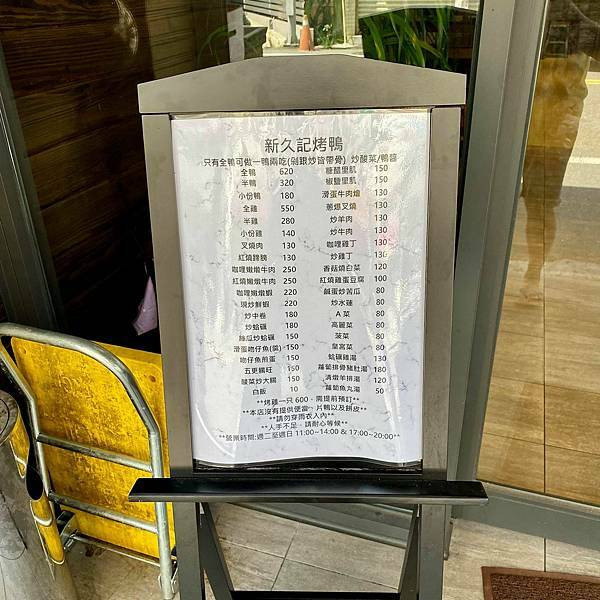 新久記烤鴨
只有全鴨可做一鴨兩吃(剁跟炒皆帶骨) 炒酸菜/鴨醬
全鴨 620
半鴨 320
小份鴨 180
全雞 550
半雞 280
小份雞 140
叉燒肉 130
紅燒蹄膀 130
咖哩嫩燉牛肉 250
紅燒嫩燉牛肉 250
咖哩嫩燉蝦 220
現炒鮮蝦 220
炒中卷 180
炒蛤蠣 180
絲瓜炒蛤蠣 150
滑蛋吻仔魚(菜) 150
吻仔魚煎蛋 150
五更腸旺 150
酸菜炒大腸 150
白飯 10
糖醋里肌 150
椒鹽里肌 150
滑蛋牛肉燴 130
蔥爆叉燒 130
炒羊肉 130
炒牛肉 130
咖哩雞丁 130
炒雞丁 130
香菇燒白菜 120
紅燒雞蛋豆腐 100
鹹蛋炒苦瓜 80
炒水蓮 80
A菜 80
高麗菜 80
菠菜 80
皇宮菜 80
蛤蠣雞湯 130
蘿蔔排骨豬肚湯 180
清燉羊排湯 120
蘿蔔魚丸湯 50
**烤雞一只600，需提前預訂**
**本店沒有提供便當、片鴨以及餅皮**
**請勿穿雨衣入內**
**人手不足，請耐心等候**
**營業時間:週二至週日 11:00~14:00 & 17:00~20:00**